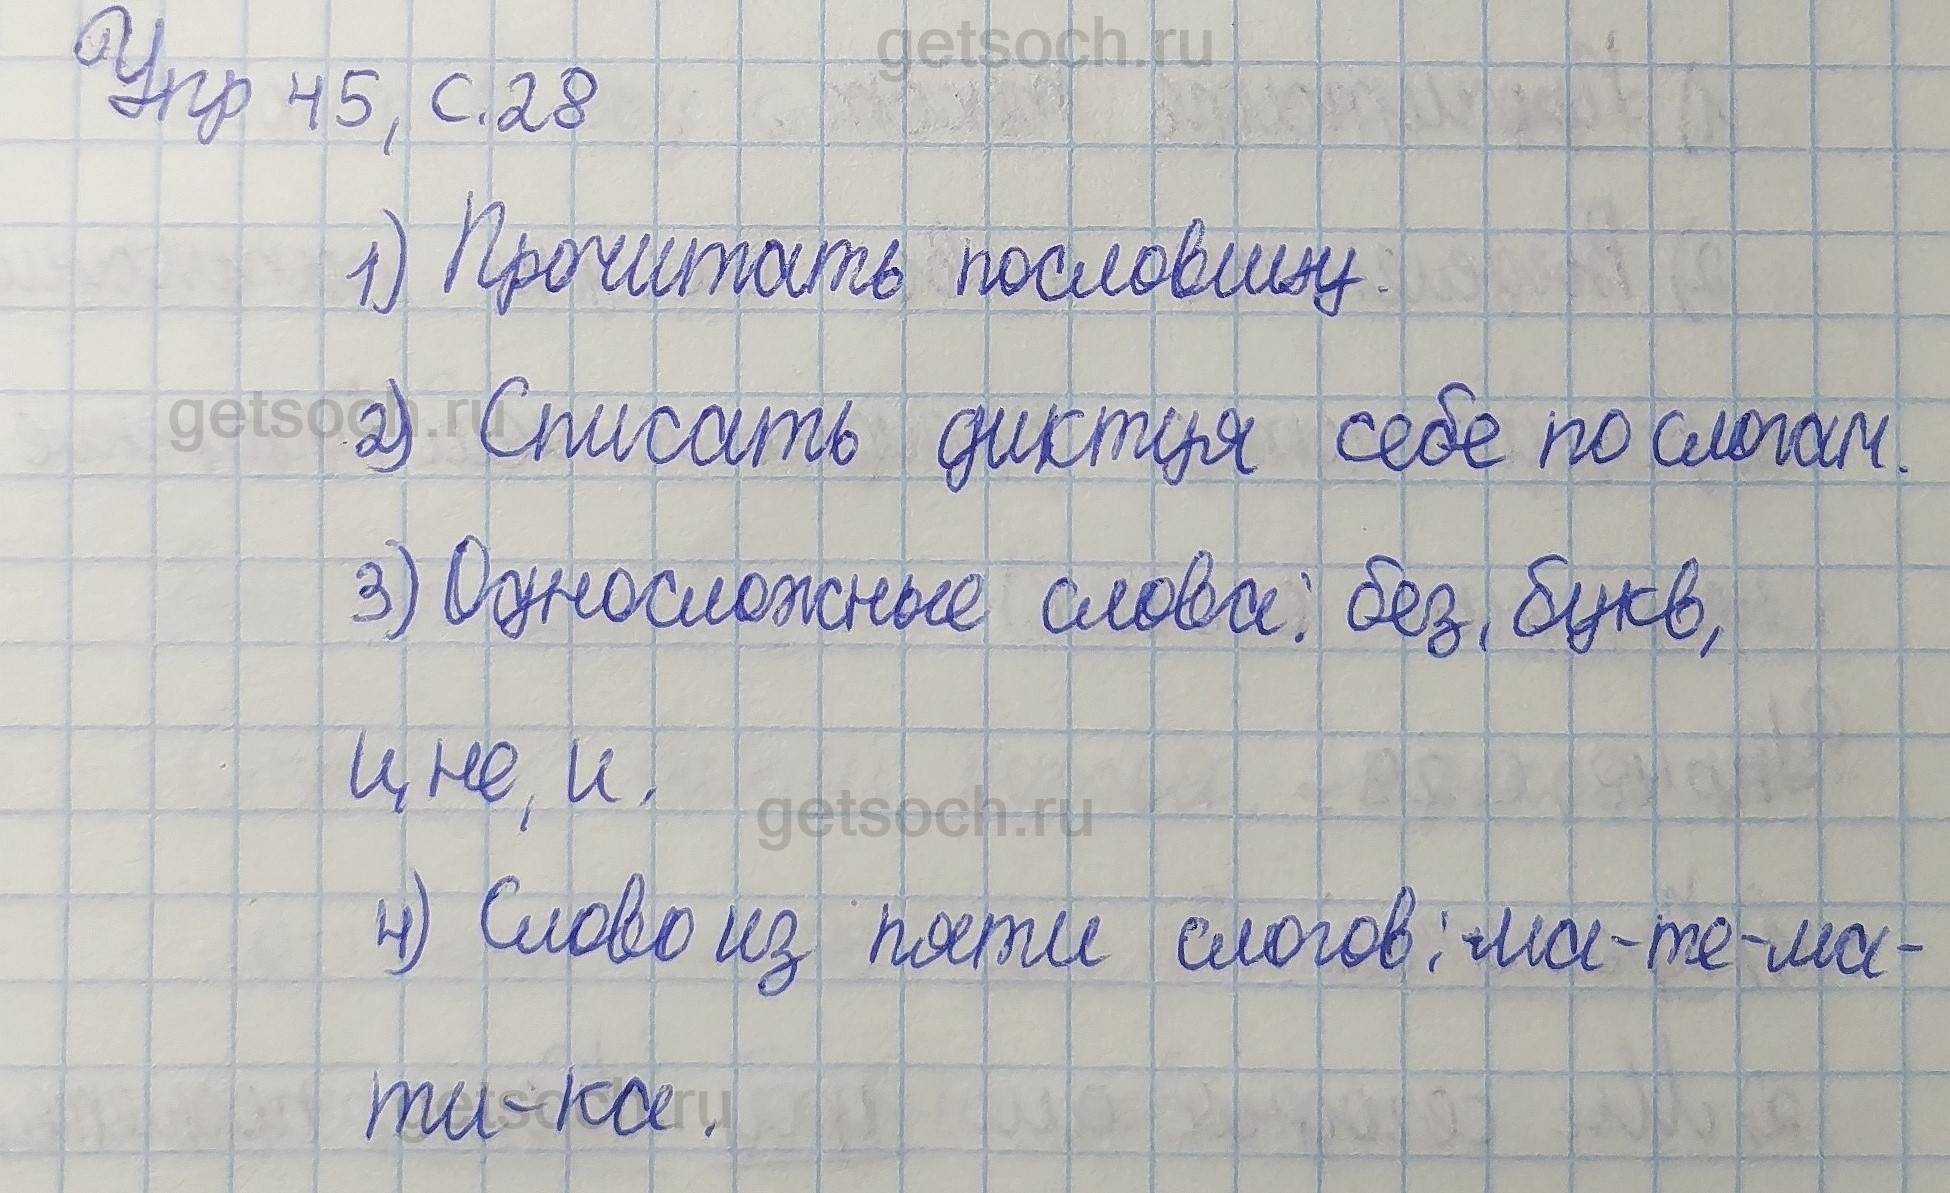 getsoch.ru
Упр 45, с. 28
1) Прочитать пословицу.
getsoch.ru
2) Списать диктуя себе по слогам.
3) Односложные слова: без, букв,
и, не, и.
getsoch.ru
4) Слово из пяти слогов: ма-те-ма-
ти-ка.
getsoch.ru